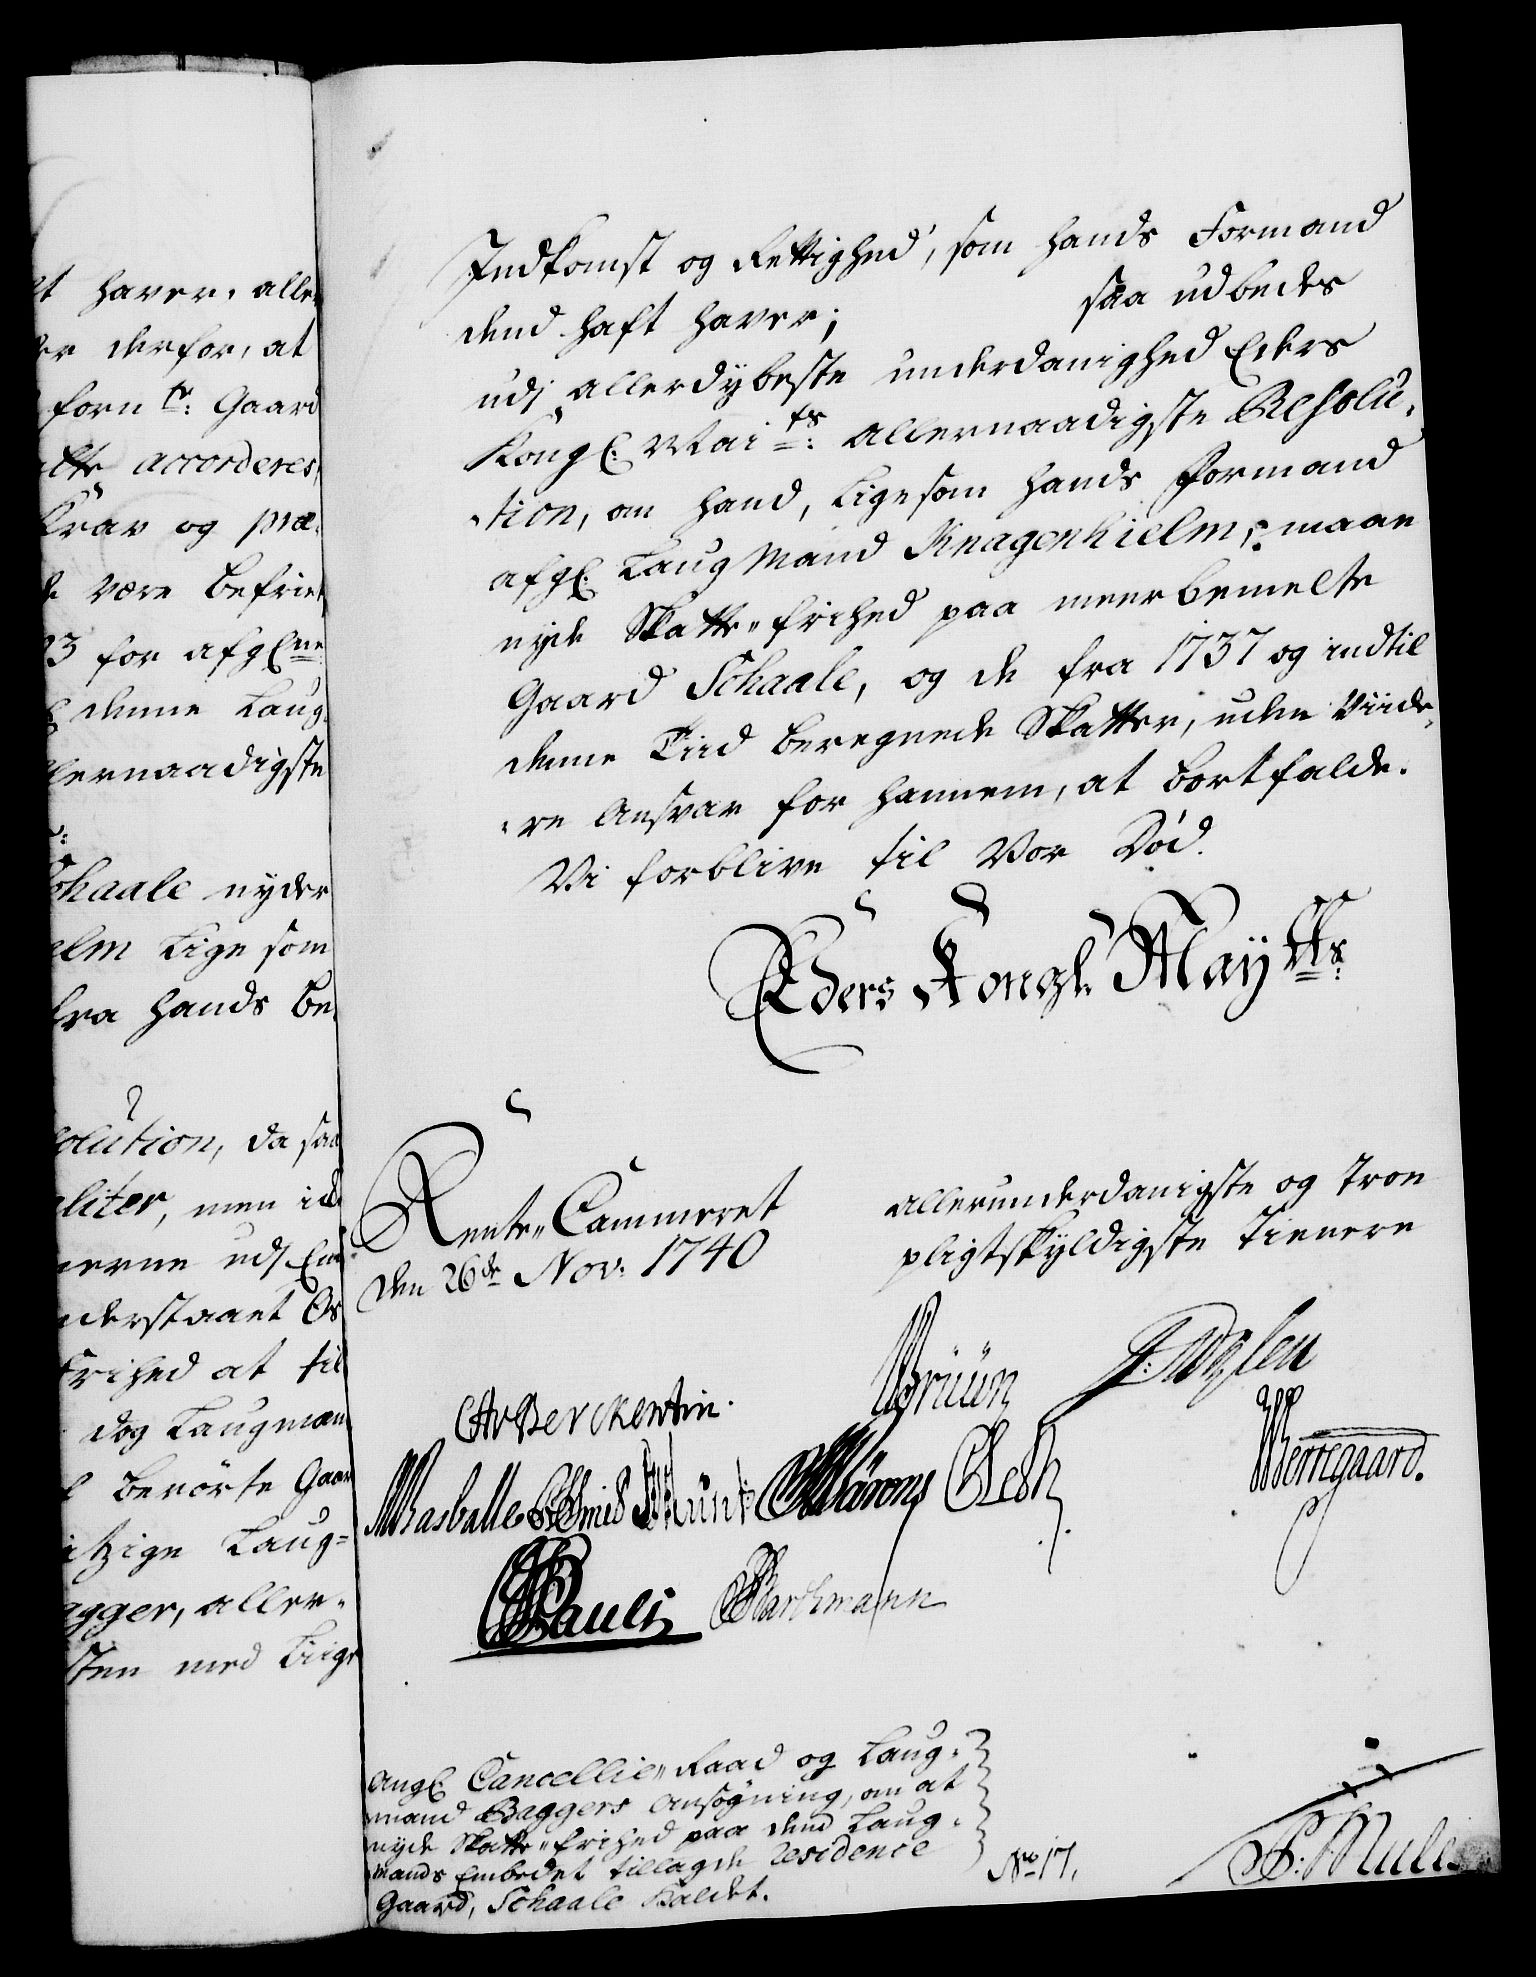 t haver, aller
er derfor, at
forn te: Gaard
atte accorderes,
Krav og præ-
e være befriet
23 for afgl ne
denne Laug-
lernaadigste
Schaale nyder
elm Lige som
fra hands Be-
solution, da saa
aliter, men ide
nerne udj Em
nderstaaet Os
Frihed at til
dog Laugmæn
berørte Gaar
itzige Laug-
agger, aller-
sten med Liige
Indkomst og Rettighed, som hands Formand
dend haft haver; saa udbedes
udj allerdybeste underdanighed Eders
Kongl. Mai ts: allernaadigste Resolu-
-tion, om hand, Ligesom hands Formand
afgl. Laug Mand Knagenhielm, maae
nyde Skatte-frihed paa meerbemelte
Gaard Schaale, og de fra 1737 og indtil
denne Tiid beregnede Skatter, uden Viide-
-re Ansvar for hannem, at bortfalde.
Vi forblive til Vor Død.
Eders Kongl. May tts:
Rente-Cammeret
den 26de Nov: 1740
allerunderdanigste og Troe
pligtskyldigste Tienere
CAvBerckentin.
Brüün
Wasballe Schmidt Munk
Werregaard.
Pauli Barthmann
Angl. Cancellie-Raad og Laug-
mand Baggers Ansøgning, om at
nyde Skatte-frihed paa dend Laug-
mands Embedet tillagde Residence
Gaard, Schaale Kaldet.
No 17.
P: Mule